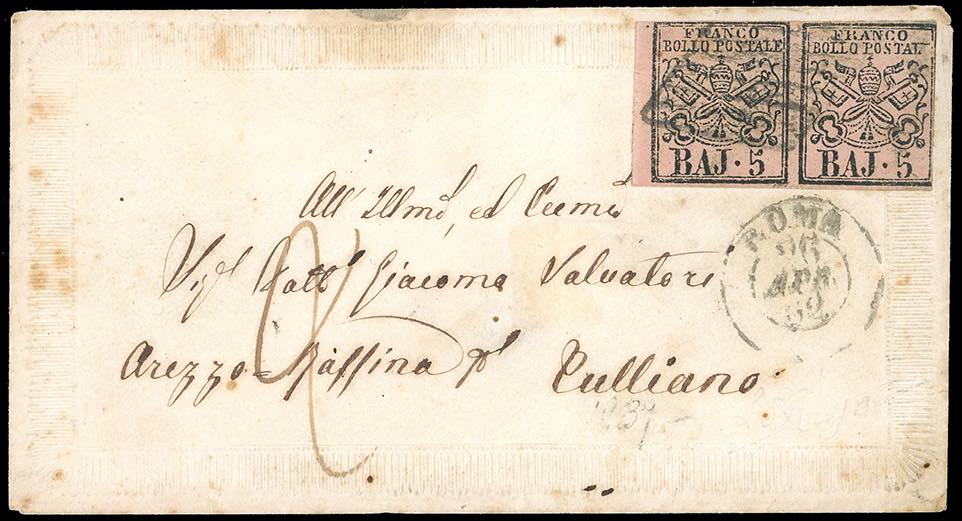 FRANCO
BOLLO POSTALE
BAJ · 5
FRANCO
BOLLO POSTAL
BAJ · 5
ROMA
26
APR
62
All' Illmo, ed Eccmo
Sigr Dottr Giacomo Salvatori
Arezzo = Rassina pr Talliano
2